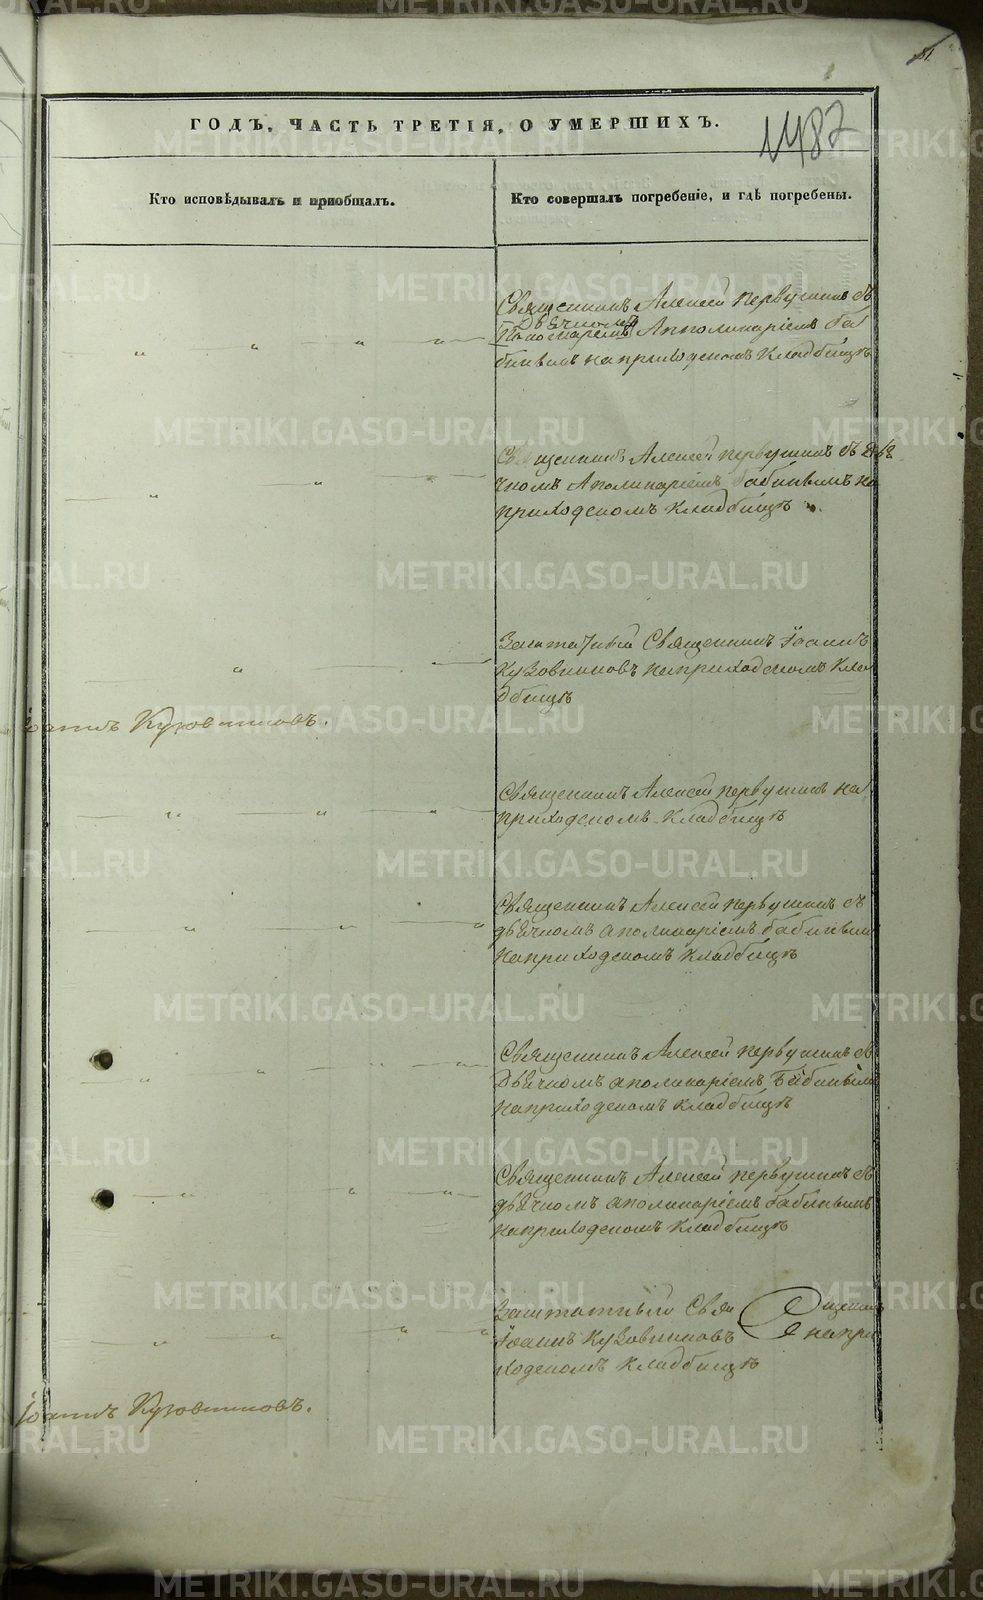 81
ГОДЪ, ЧАСТЬ ТРЕТІЯ, О УМЕРШИХЪ.
1487
Кто исповѣдывалъ и пріобщалъ.
Кто совершалъ погребеніе, и гдѣ погребены.
Священникъ Алексей Первушинъ съ
Дьячкомъ
Пономаремъ Апполинаріемъ Ба
бинымъ на приходскомъ Кладбищѣ
Священникъ Алексей Первушинъ съ Дья
чкомъ Аполинаріемъ Бабинымъ на
приходскомъ кладбищѣ.
Заштатный Священникъ Іоаннъ
Кузовниковъ на приходскомъ Кла
дбищѣ
Іоаннъ Кузовниковъ.
Священникъ Алексей Первушинъ на
приходскомъ Кладбищѣ
Священникъ Алексей Первушинъ съ
дьячкомъ Аполинаріемъ Бабинымъ
на приходскомъ Кладбищѣ
Священникъ Алексей Первушинъ съ
Дьячкомъ Аполинаріемъ Бабинымъ
на приходскомъ кладбищѣ
Священникъ Алексей Первушинъ съ
дьячкомъ Аполинаріемъ Бабинымъ
на приходскомъ Кладбищѣ
Заштатный Свя щенникъ
Іоаннъ Кузовниковъ на при
ходскомъ Кладбищѣ
Іоаннъ Кузовниковъ.
METRIKI.GASO-URAL.RU